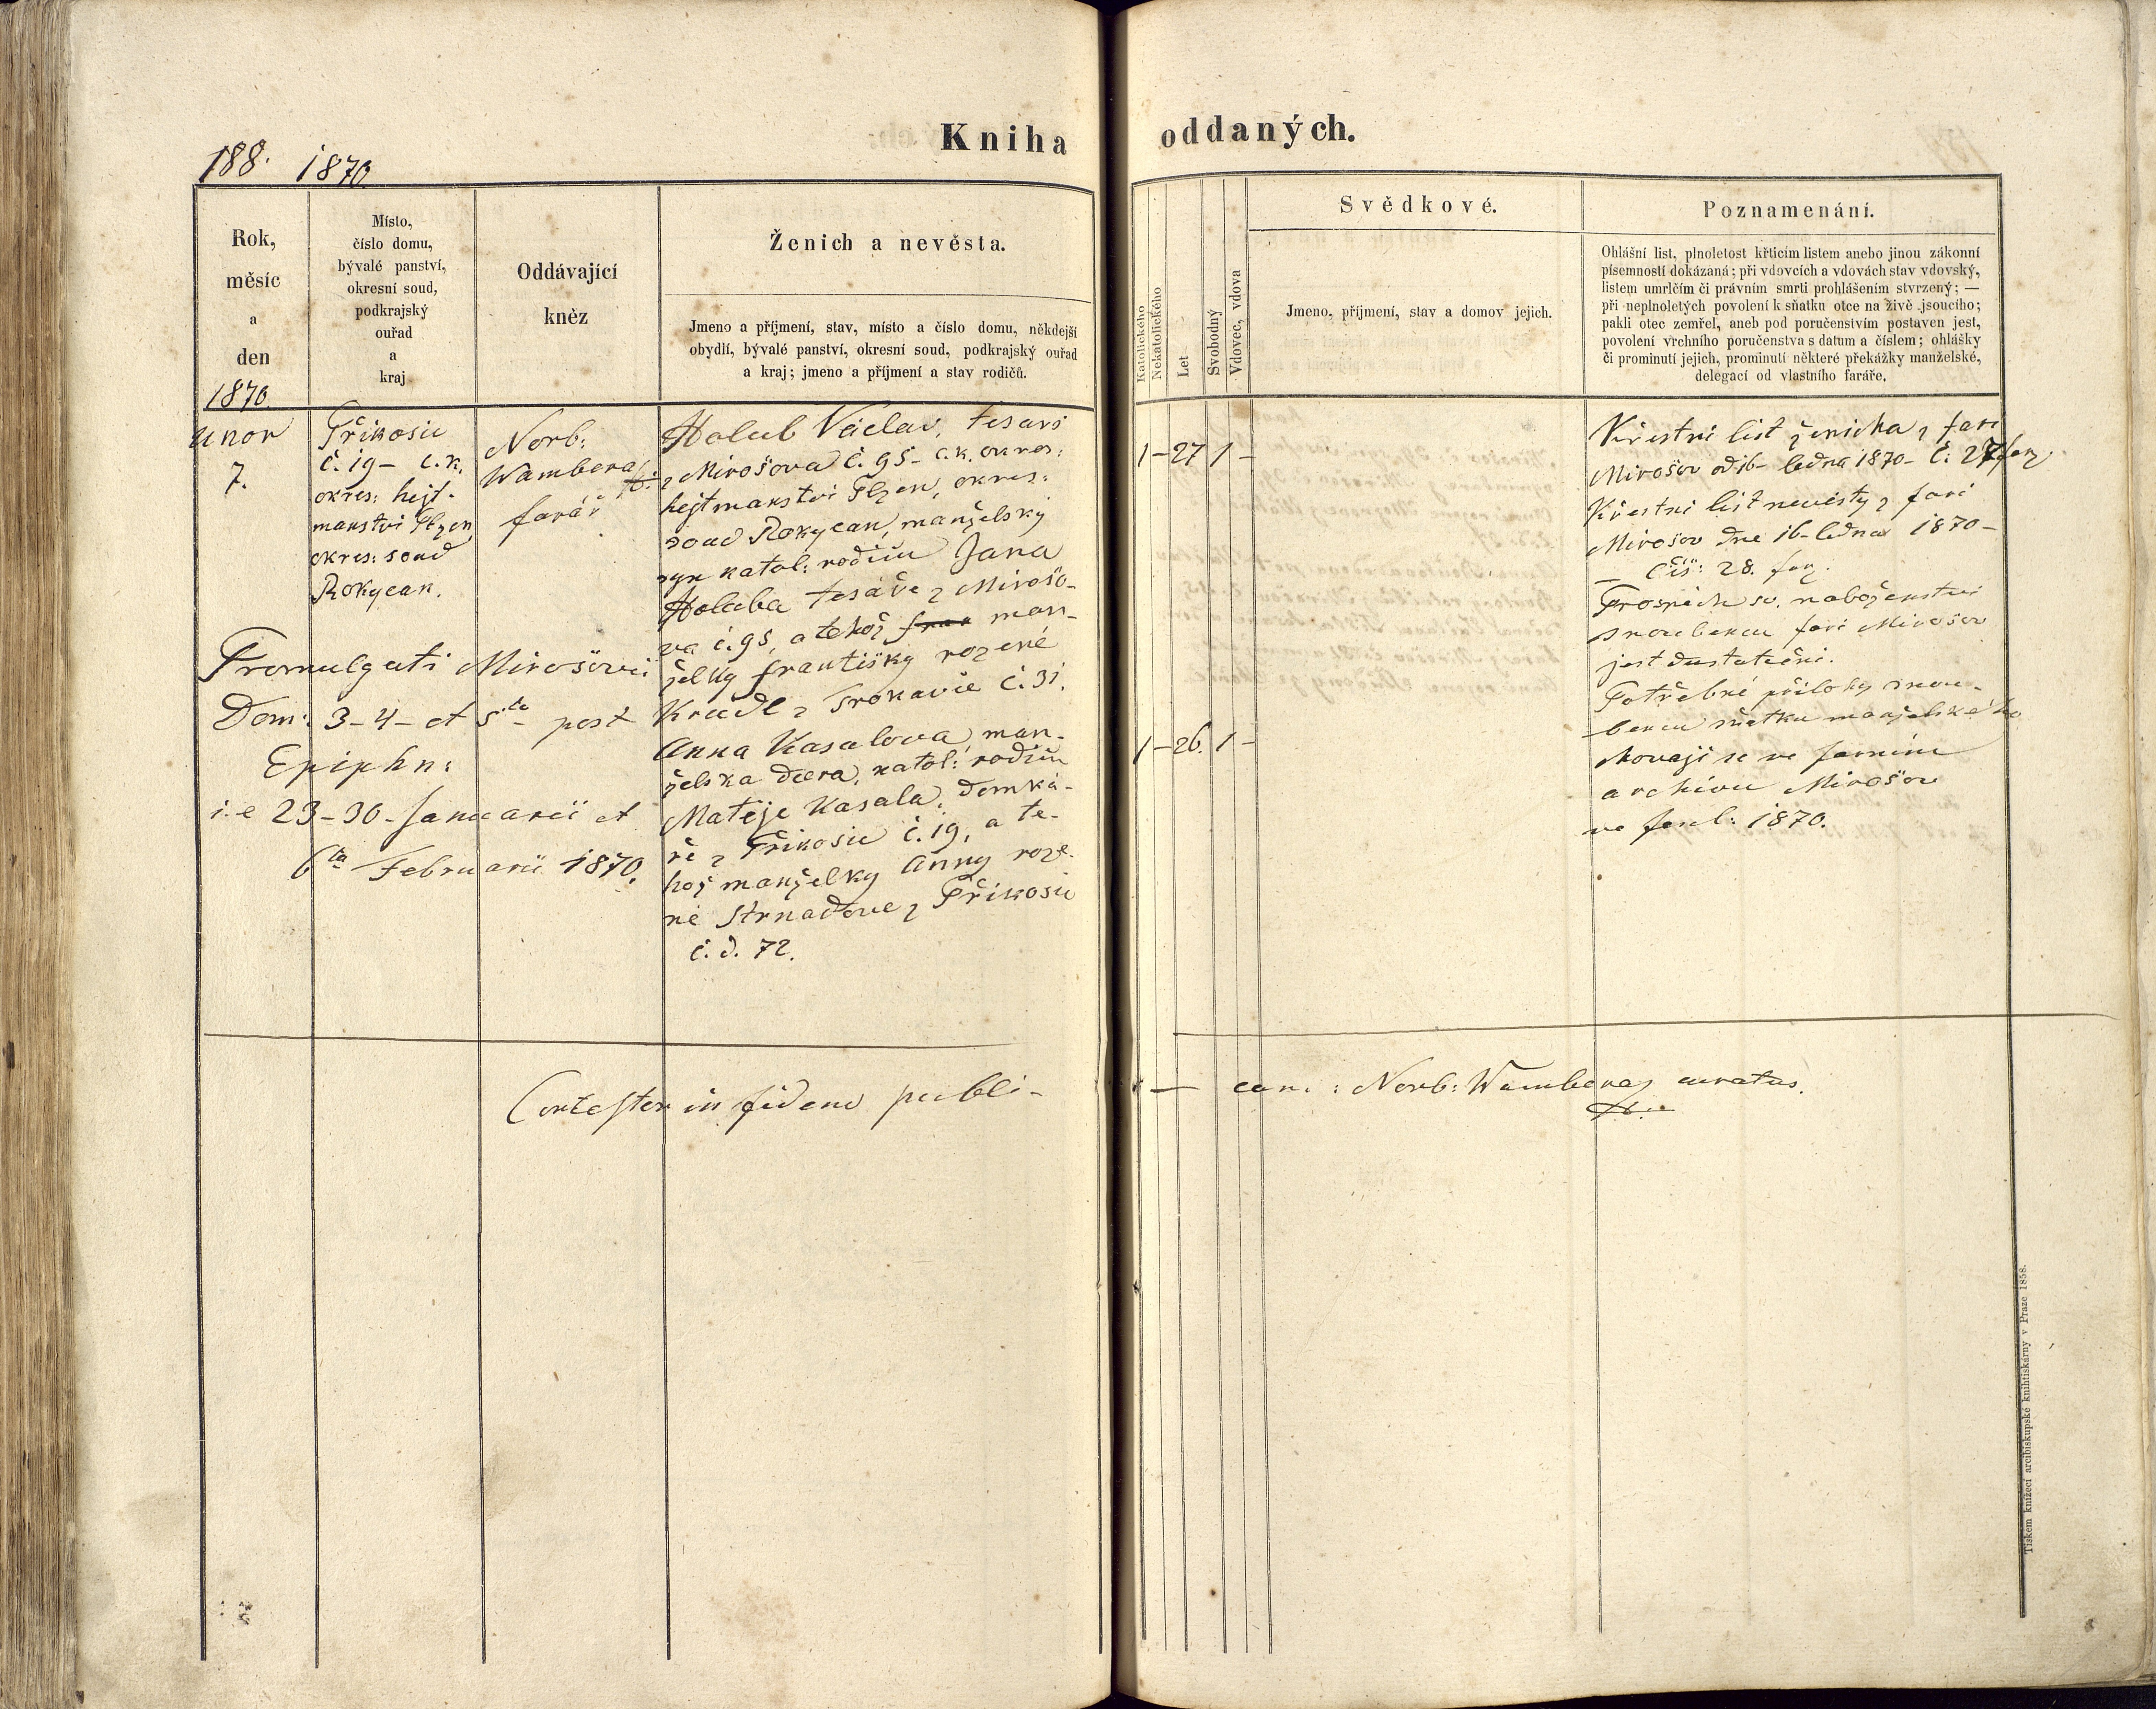 Kniha oddaných.
188. 1870.
Rok,
měsíc
a
den
1870.
Místo,
číslo domu,
bývalé panství,
okresní soud,
podkrajský
ouřad
a
kraj
Oddávající
kněz
Ženich a nevěsta.
Jmeno a příjmení, stav, místo a číslo domu, někdejší
obydlí, bývalé panství, okresní soud, podkrajský ouřad
a kraj; jmeno a příjmení a stav rodičů.
Katolického
Nekatolického
Let
Svobodný
Vdovec, vdova
Svědkové.
Jmeno, příjmení, stav a domov jejich.
Poznamenání.
Ohlášní list, plnoletost křticím listem anebo jinou zákonní
písemností dokázaná; při vdovcích a vdovách stav vdovský,
listem umrlčím či právním smrti prohlášením stvrzený; —
při neplnoletých povolení k sňatku otce na živě jsoucího;
pakli otec zemřel, aneb pod poručenstvím postaven jest,
povolení vrchního poručenstva s datum a číslem; ohlášky
či prominutí jejich, prominutí některé překážky manželské,
delegací od vlastního faráře.
Unor
7.
Příkosic
č. 19 – c. k.
okres: hejt-
manství Plzen
okres: soud
Rokycan.
Norb:
Wambera
farář
Holub Václav, tesař
z Mirošova č. 95 – c. k. okres:
hejtmanství Plzen, okres:
soud Rokycan, manželský
syn katol: rodičů Jana
Holuba tesaře z Mirošo-
va č. 95, a tehož man-
želky Františky rozené
Kreidl z Trokavce č. 31.
Anna Kasalova, man-
želska dcera, katol: rodičů
Matěje Kasala, domká-
ře z Příkosic č. 19, a te-
hož manželky Anny roze-
né Strnadove z Příkosic
č. d. 72.
1 – 27 1 –
1 – 26. 1 –
Promulgati Mirošovii
Dom: 3 – 4 – et 5ta post
Epiphn:
i. e 23 – 30 – Januarii et
6ta Februarii 1870.
Křestní list ženicha z fary
Mirošov od 16 – ledna 1870 – č: 27
Křestní list nevěsty z fary
Mirošov dne 16 – ledna 1870 –
čís: 28.
Prospěch sv. naboženství
snoubencu fary Mirošov
jest dustatečni.
Potřebné přilohy snou-
bencu sňatku manželského
chovají se ve farním
archivu Mirošov
ve fascl: 1870.
Contestor in fidem publi – cam: Norb: Wambera, curatus.
Tiskem knížecí arcibiskupské knihtiskárny v Praze 1858.